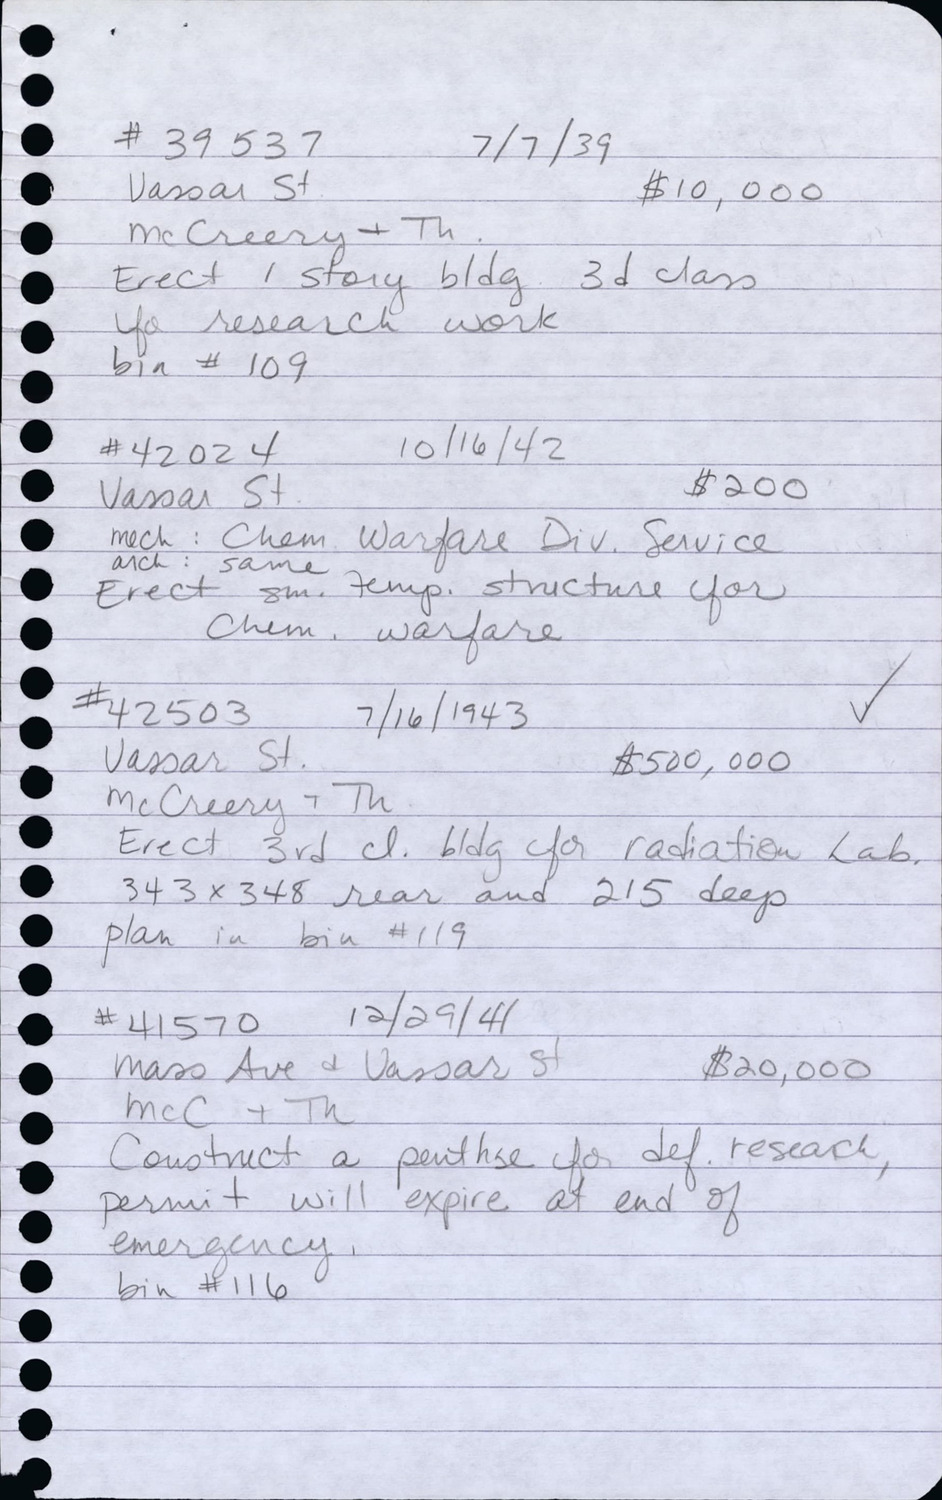 # 39537 7/7/39
Vassar St. $10,000
McCreery + Th.
Erect 1 story bldg. 3d class
for research work
bin # 109
#42024 10/16/42
Vassar St. $200
mech : Chem. Warfare Div. Service
arch : same
Erect sm. temp. structure for
Chem. warfare
#42503 7/16/1943 ✓
Vassar St. $500,000
McCreery + Th
Erect 3rd cl. bldg for radiation Lab.
343 x 348 rear and 215 deep
plan in bin #119
#41570 12/29/41
Mass Ave + Vassar St $20,000
McC + Th
Construct a penthse for def. research,
permit will expire at end of
emergency.
bin #116